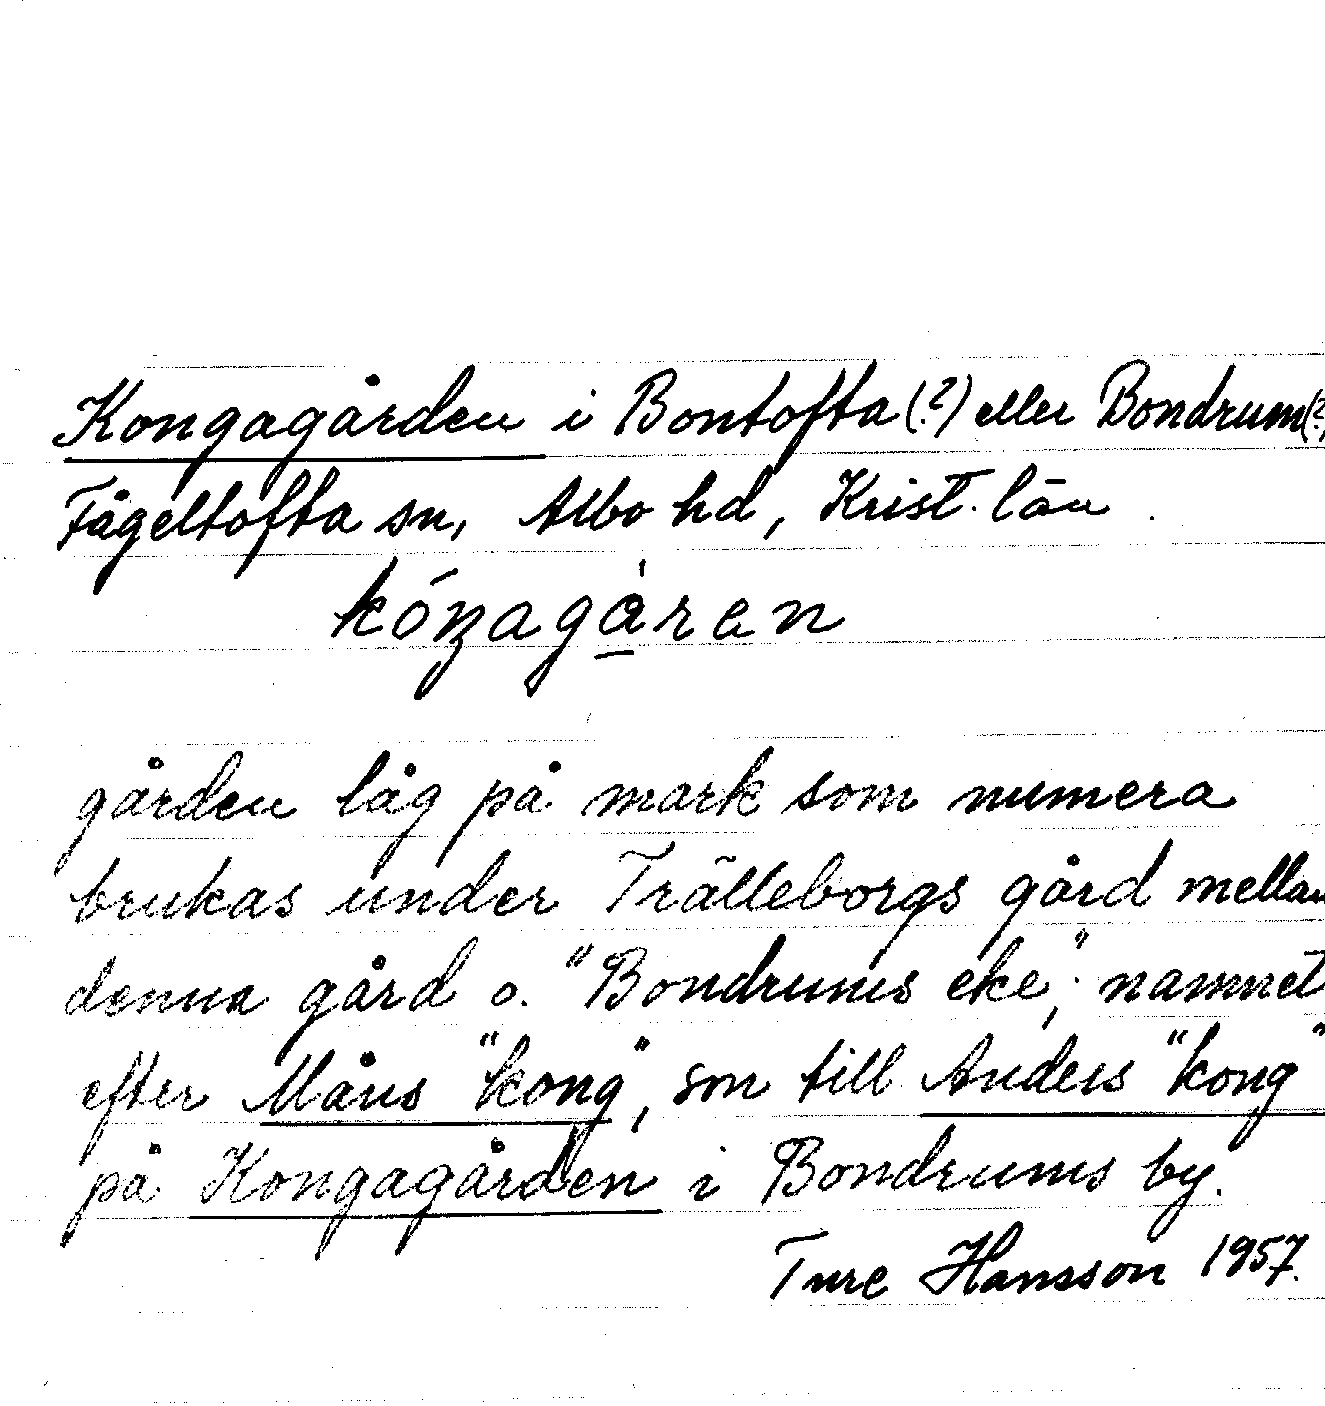 Kongagården i Bontofta (?) eller Bondrum (?)
Fågeltofta sn, Albo hd, Krist. län.
kóŋagàren
gården låg på mark som numera
brukas under Trälleborgs gård mellan
denna gård o. "Bondrums eke"; namnet
efter Måns "kong", son till Anders "kong"
på Kongagården i Bondrums by.
Ture Hansson 1957.